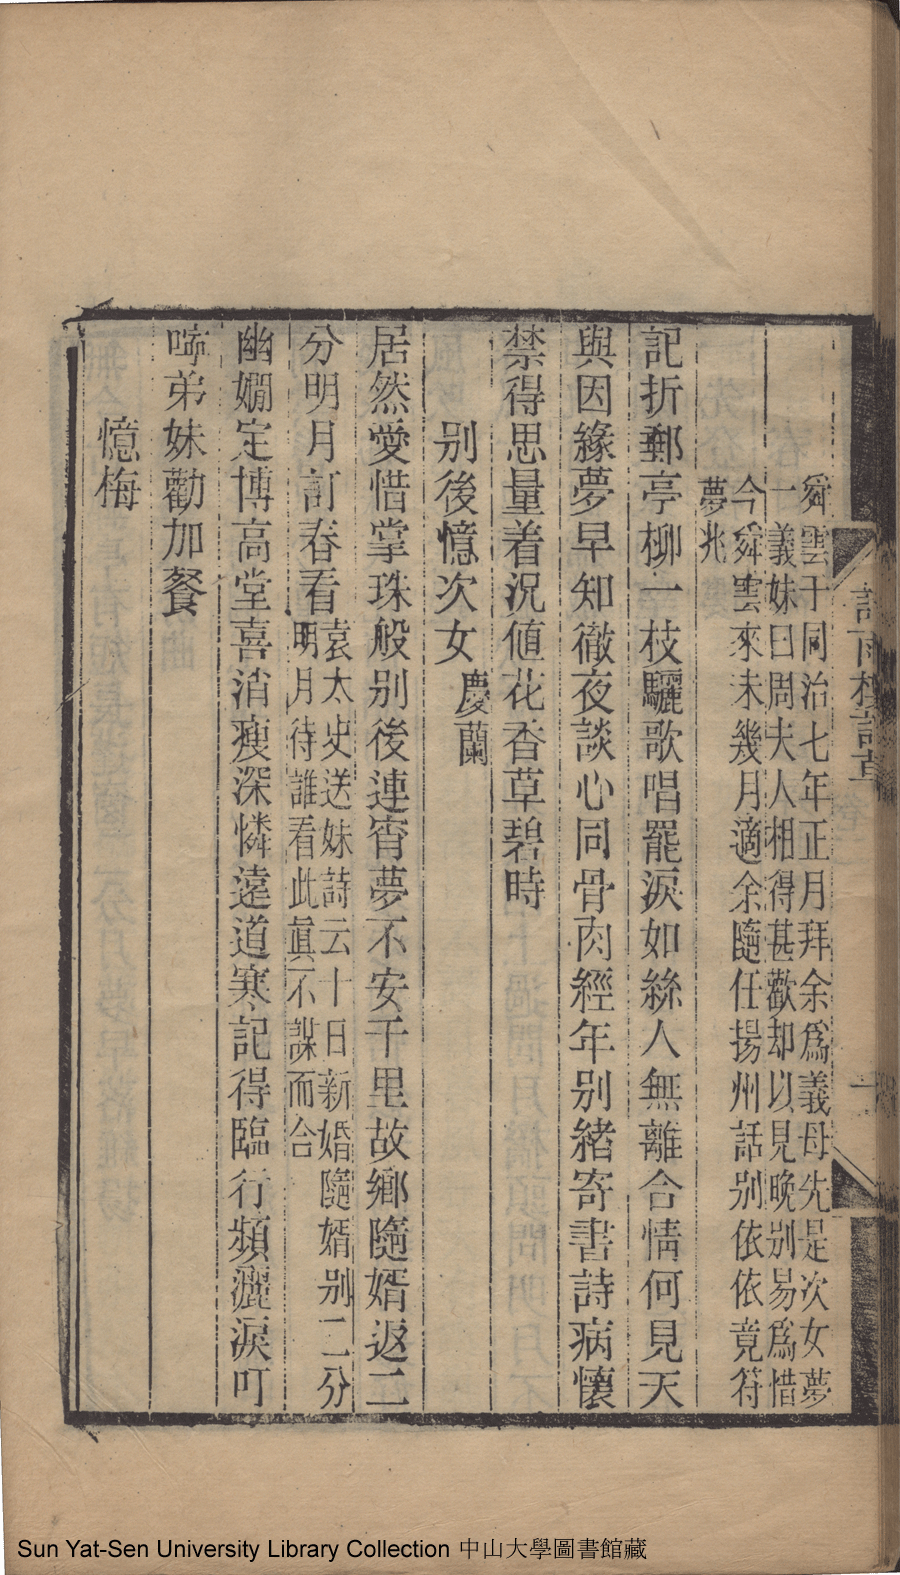 舜雲于同治七年正月拜余為義母先是次女夢
一義妹曰周夫人相得甚歡却以見晚别易為惜
今舜雲來未幾月適余隨任揚州話别依依竟符
夢兆
記折郵亭柳一枝驪歌唱罷淚如絲人無離合情何見天
與因緣夢早知徹夜談心同骨肉經年别緒寄書詩病懷
禁得思量着况値花香草碧時
别後憶次女慶蘭
居然愛惜掌珠般别後連宵夢不安千里故鄉隨婿返二
分明月訂春看袁太史送妹詩云十日新婚隨婿别二分
明月待誰看此眞不謀而合
幽嫺定博高堂喜消瘦深憐遠道寒記得臨行頻灑淚叮
嚀弟妹勸加餐
憶梅
Sun Yat-Sen University Library Collection 中山大學圖書館藏